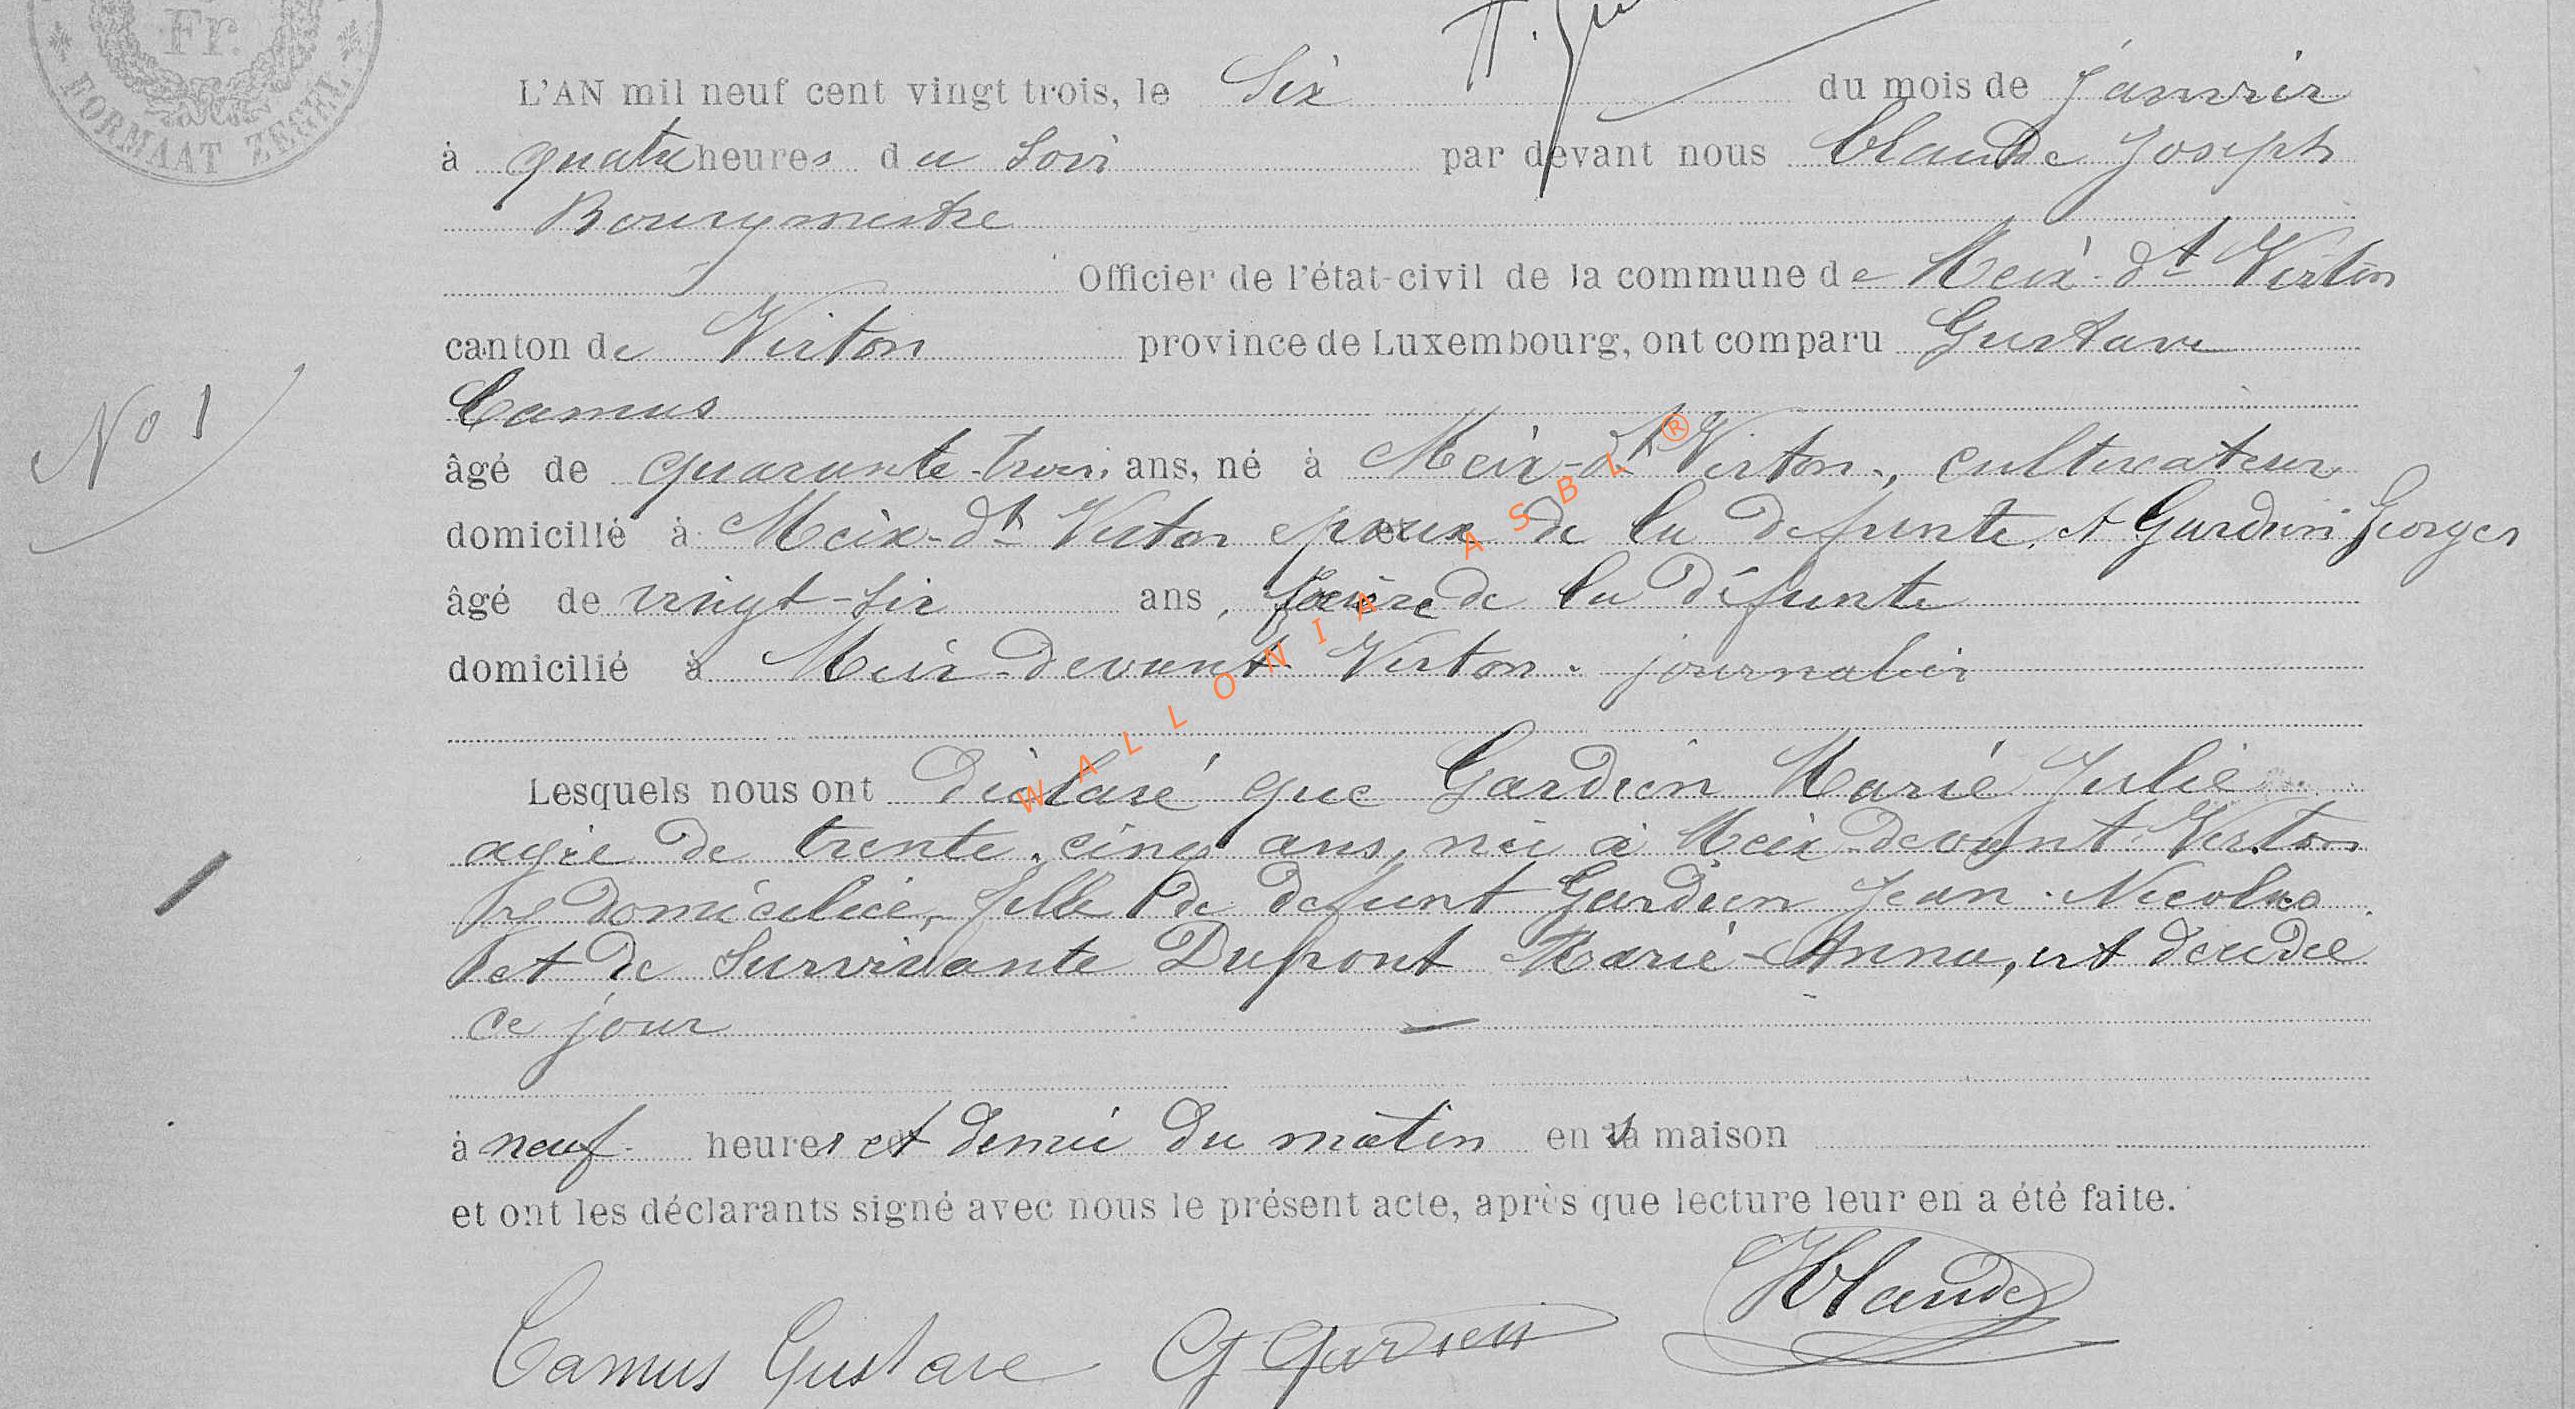 Fr.
FORMAAT ZEGEL
L'AN mil neuf cent vingt trois, le Six du mois de Janvier
à quatre heures du soir par devant nous Claude Joseph
Bourgmestre
Officier de l'état-civil de la commune de Meix-dt Virton
canton de Virton province de Luxembourg, ont comparu Gustave
Camus
No 1
âgé de quarante-trois ans, né à Meix-dt Virton, cultivateur
domicilié à Meix-dt Virton époux de la defunte, et Gardien Georges
âgé de vingt-six ans, frère de la défunte
domicilié à Meix-devant Virton. journalier
Lesquels nous ont déclaré que Gardien Marie Julie
agée de trente-cinq ans, née à Meix-devant-Virton
y domiciliée, fille de defunt Gardien Jean-Nicolas
et de survivante Dupont Marie-Anna, est décédée
ce jour
à neuf heures et demie du matin en sa maison
et ont les déclarants signé avec nous le présent acte, après que lecture leur en a été faite.
Camus Gustave G Gardien JClaude
WALLONIA ASBL®